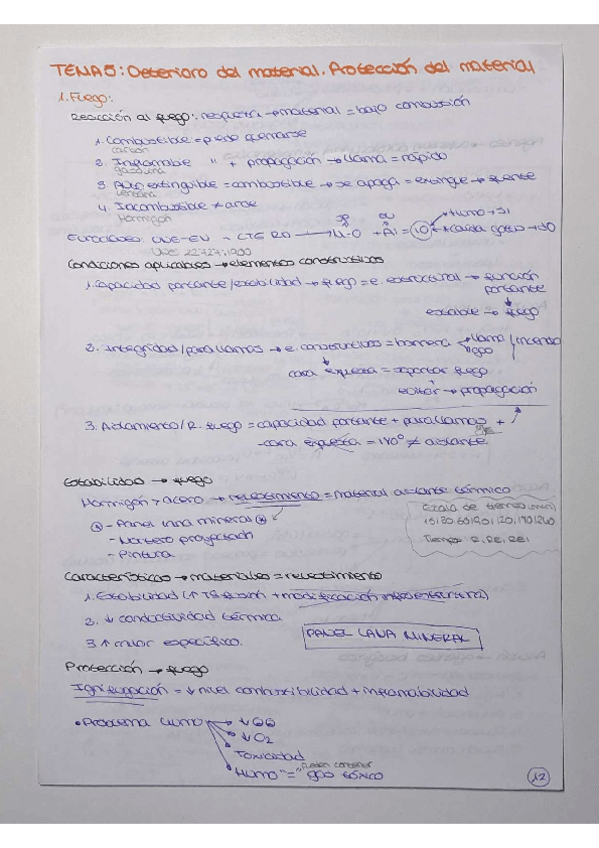 TEMA 5: Deterioro del material. Protección del material
1. Fuego:
Reacción al fuego: respuesta → material = bajo combustión
1. Combustible = puede quemarse
carbón
2. Inflamable " + propagación → llama = rápido
gasolina
3. Autoextinguible = combustible → se apaga = extingue → fuente
4. Incombustible ≠ arde
Hormigón
Euroclases: UNE-EN
UNE 23727:1990
Condiciones aplicables → elementos constructivos
1. Capacidad portante/estabilidad → fuego = e. estructural → función
portante
estable → fuego
2. Integridad/parallamas → e. constructivos = barrera llama/incendio
gas
cara expuesta = soportar fuego
evitar → propagación
3. Aislamiento/R. fuego = capacidad portante + parallamas +
-cara expuesta = 140° ≠ aislante
Estabilidad → fuego
Hormigón > acero → revestimiento = material aislante térmico
- Panel lana mineral
- Mortero proyectado
- Pintura
Escala de tiempo (min)
15/30/60/90/120/180/240
Tiempo: R, RE, REI
Características → materiales = revestimiento
1. Estabilidad (↑ Tª fusión + modificación
2. ↓ conductividad térmica
3 ↑ calor específico.
PANEL LANA MINERAL
Protección → fuego
Ignifugación = ↓ nivel combustibilidad + inflamabilidad
• Problema humo
↓ O2
Toxicidad
Pueden contener
Humo "=" gas tóxico
12